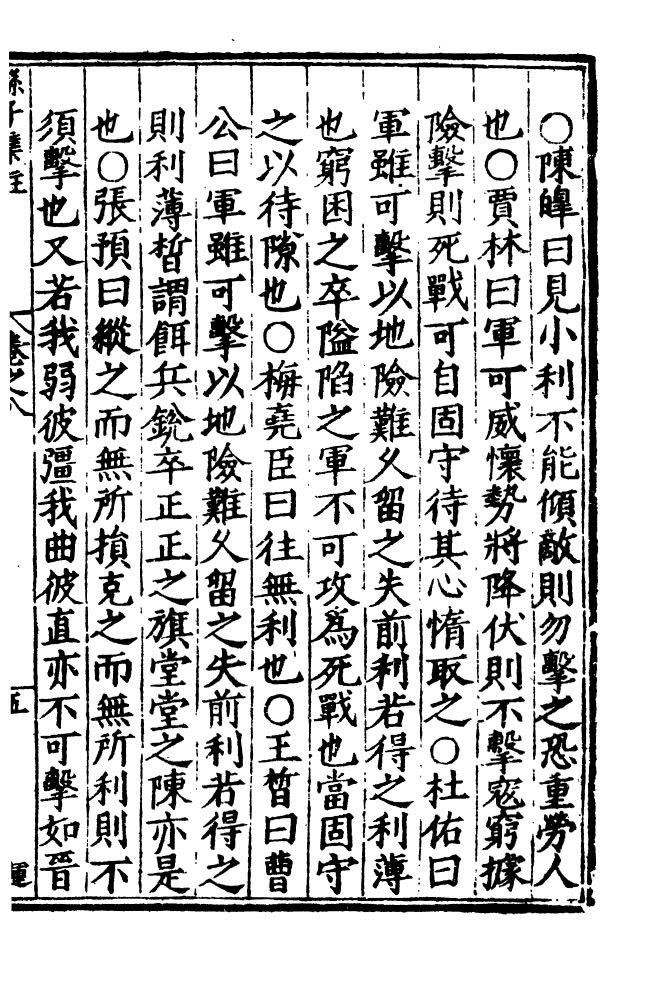 ○陳皥曰見小利不能傾敵則勿擊之恐重勞人
也○賈林曰軍可威懷勢將降伏則不擊寇窮據
險擊則死戰可自固守待其心惰取之○杜佑曰
軍雖可擊以地險難久留之失前利若得之利薄
也窮困之卒隘陷之軍不可攻爲死戰也當固守
之以待隙也○梅堯臣曰往無利也○王晳曰曹
公曰軍雖可擊以地險難久留之失前利若得之
則利薄晳謂餌兵銳卒正正之旗堂堂之陳亦是
也○張預曰縱之而無所損克之而無所利則不
須擊也又若我弱彼彊我曲彼直亦不可擊如晉
孫子集註 卷之八 五